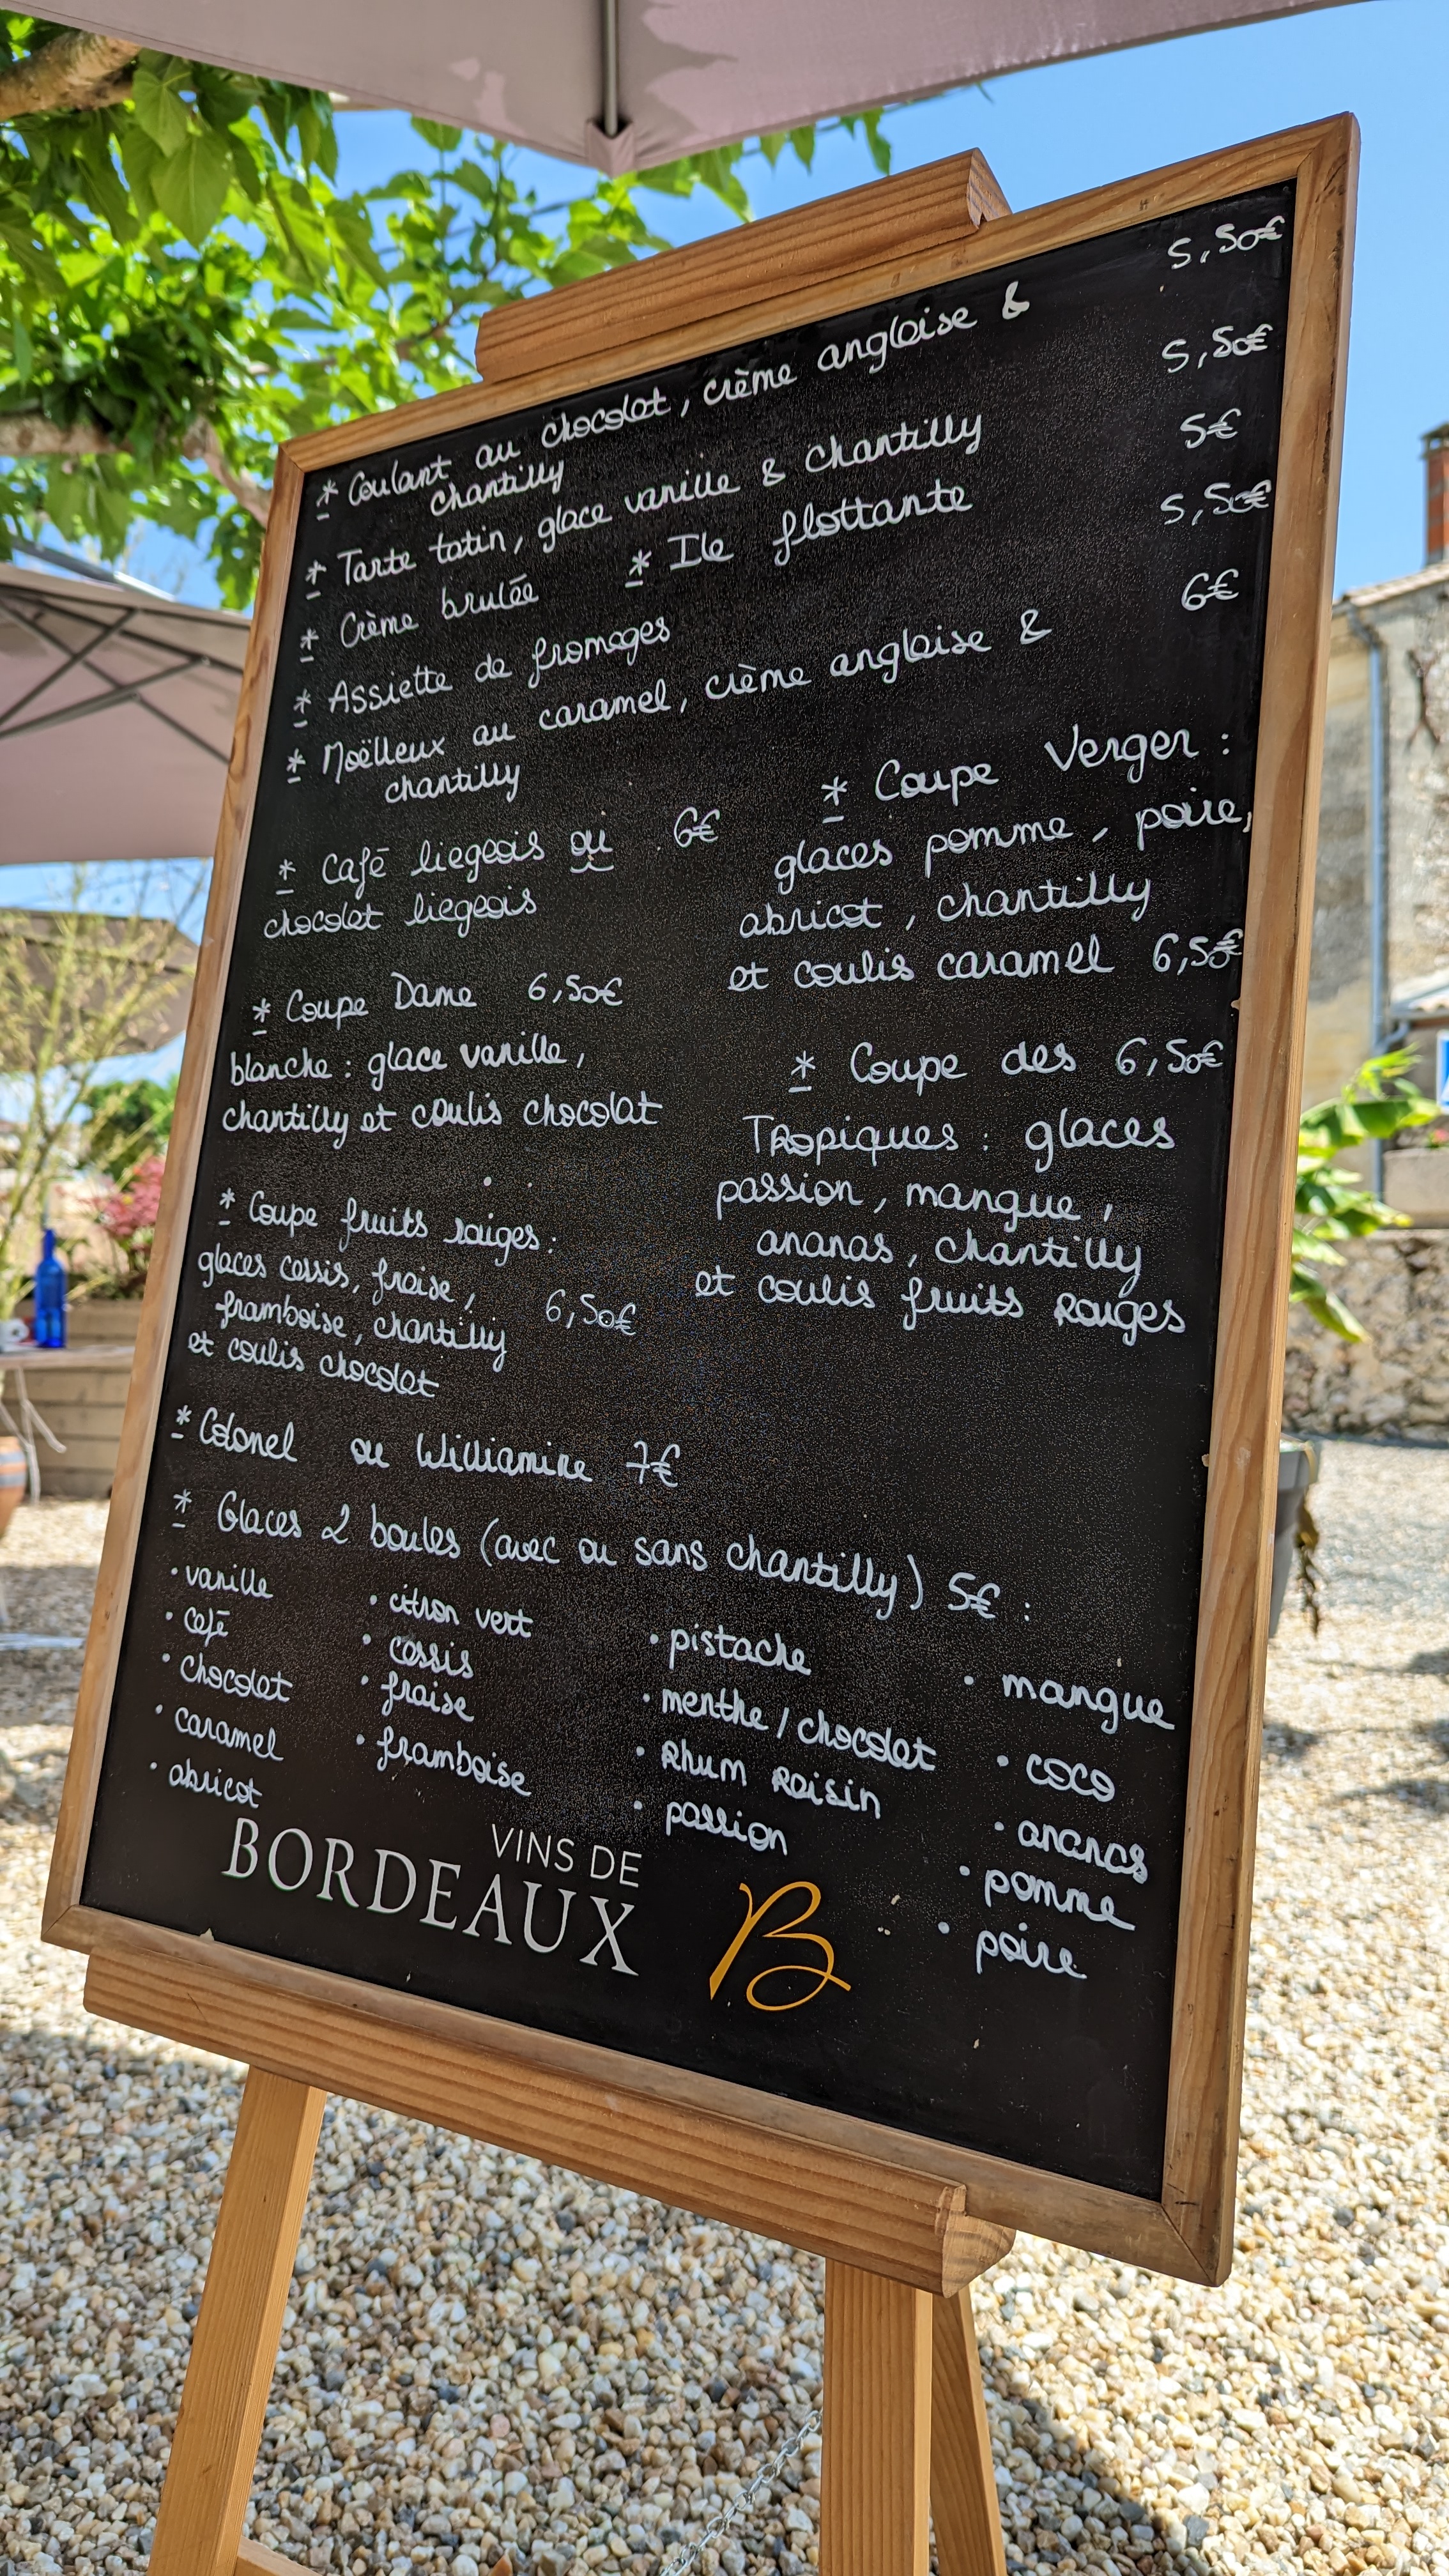 * Coulant au chocolat, crème anglaise & 5,50€
chantilly
* Tarte tatin, glace vanille & chantilly 5,50€
* Crème brulée * Ile flottante 5€
* Assiette de fromages 5,50€
* Moëlleux au caramel, crème anglaise & 6€
chantilly
* Café liegeois ou 6€
chocolat liegeois
* Coupe Dame 6,50€
blanche : glace vanille,
chantilly et coulis chocolat
* Coupe fruits rouges :
glaces cassis, fraise,
framboise, chantilly 6,50€
et coulis chocolat
* Coupe Verger :
glaces pomme, poire,
abricot, chantilly
et coulis caramel 6,5€
* Coupe des 6,50€
Tropiques : glaces
passion, mangue,
ananas, chantilly
et coulis fruits rouges
* Colonel ou Williamine 7€
* Glaces 2 boules (avec ou sans chantilly) 5€ :
• vanille
• café
• chocolat
• caramel
• abricot
• citron vert
• cassis
• fraise
• framboise
• pistache
• menthe / chocolat
• Rhum Raisin
• passion
• mangue
• coco
• ananas
• pomme
• poire
VINS DE
BORDEAUX
B